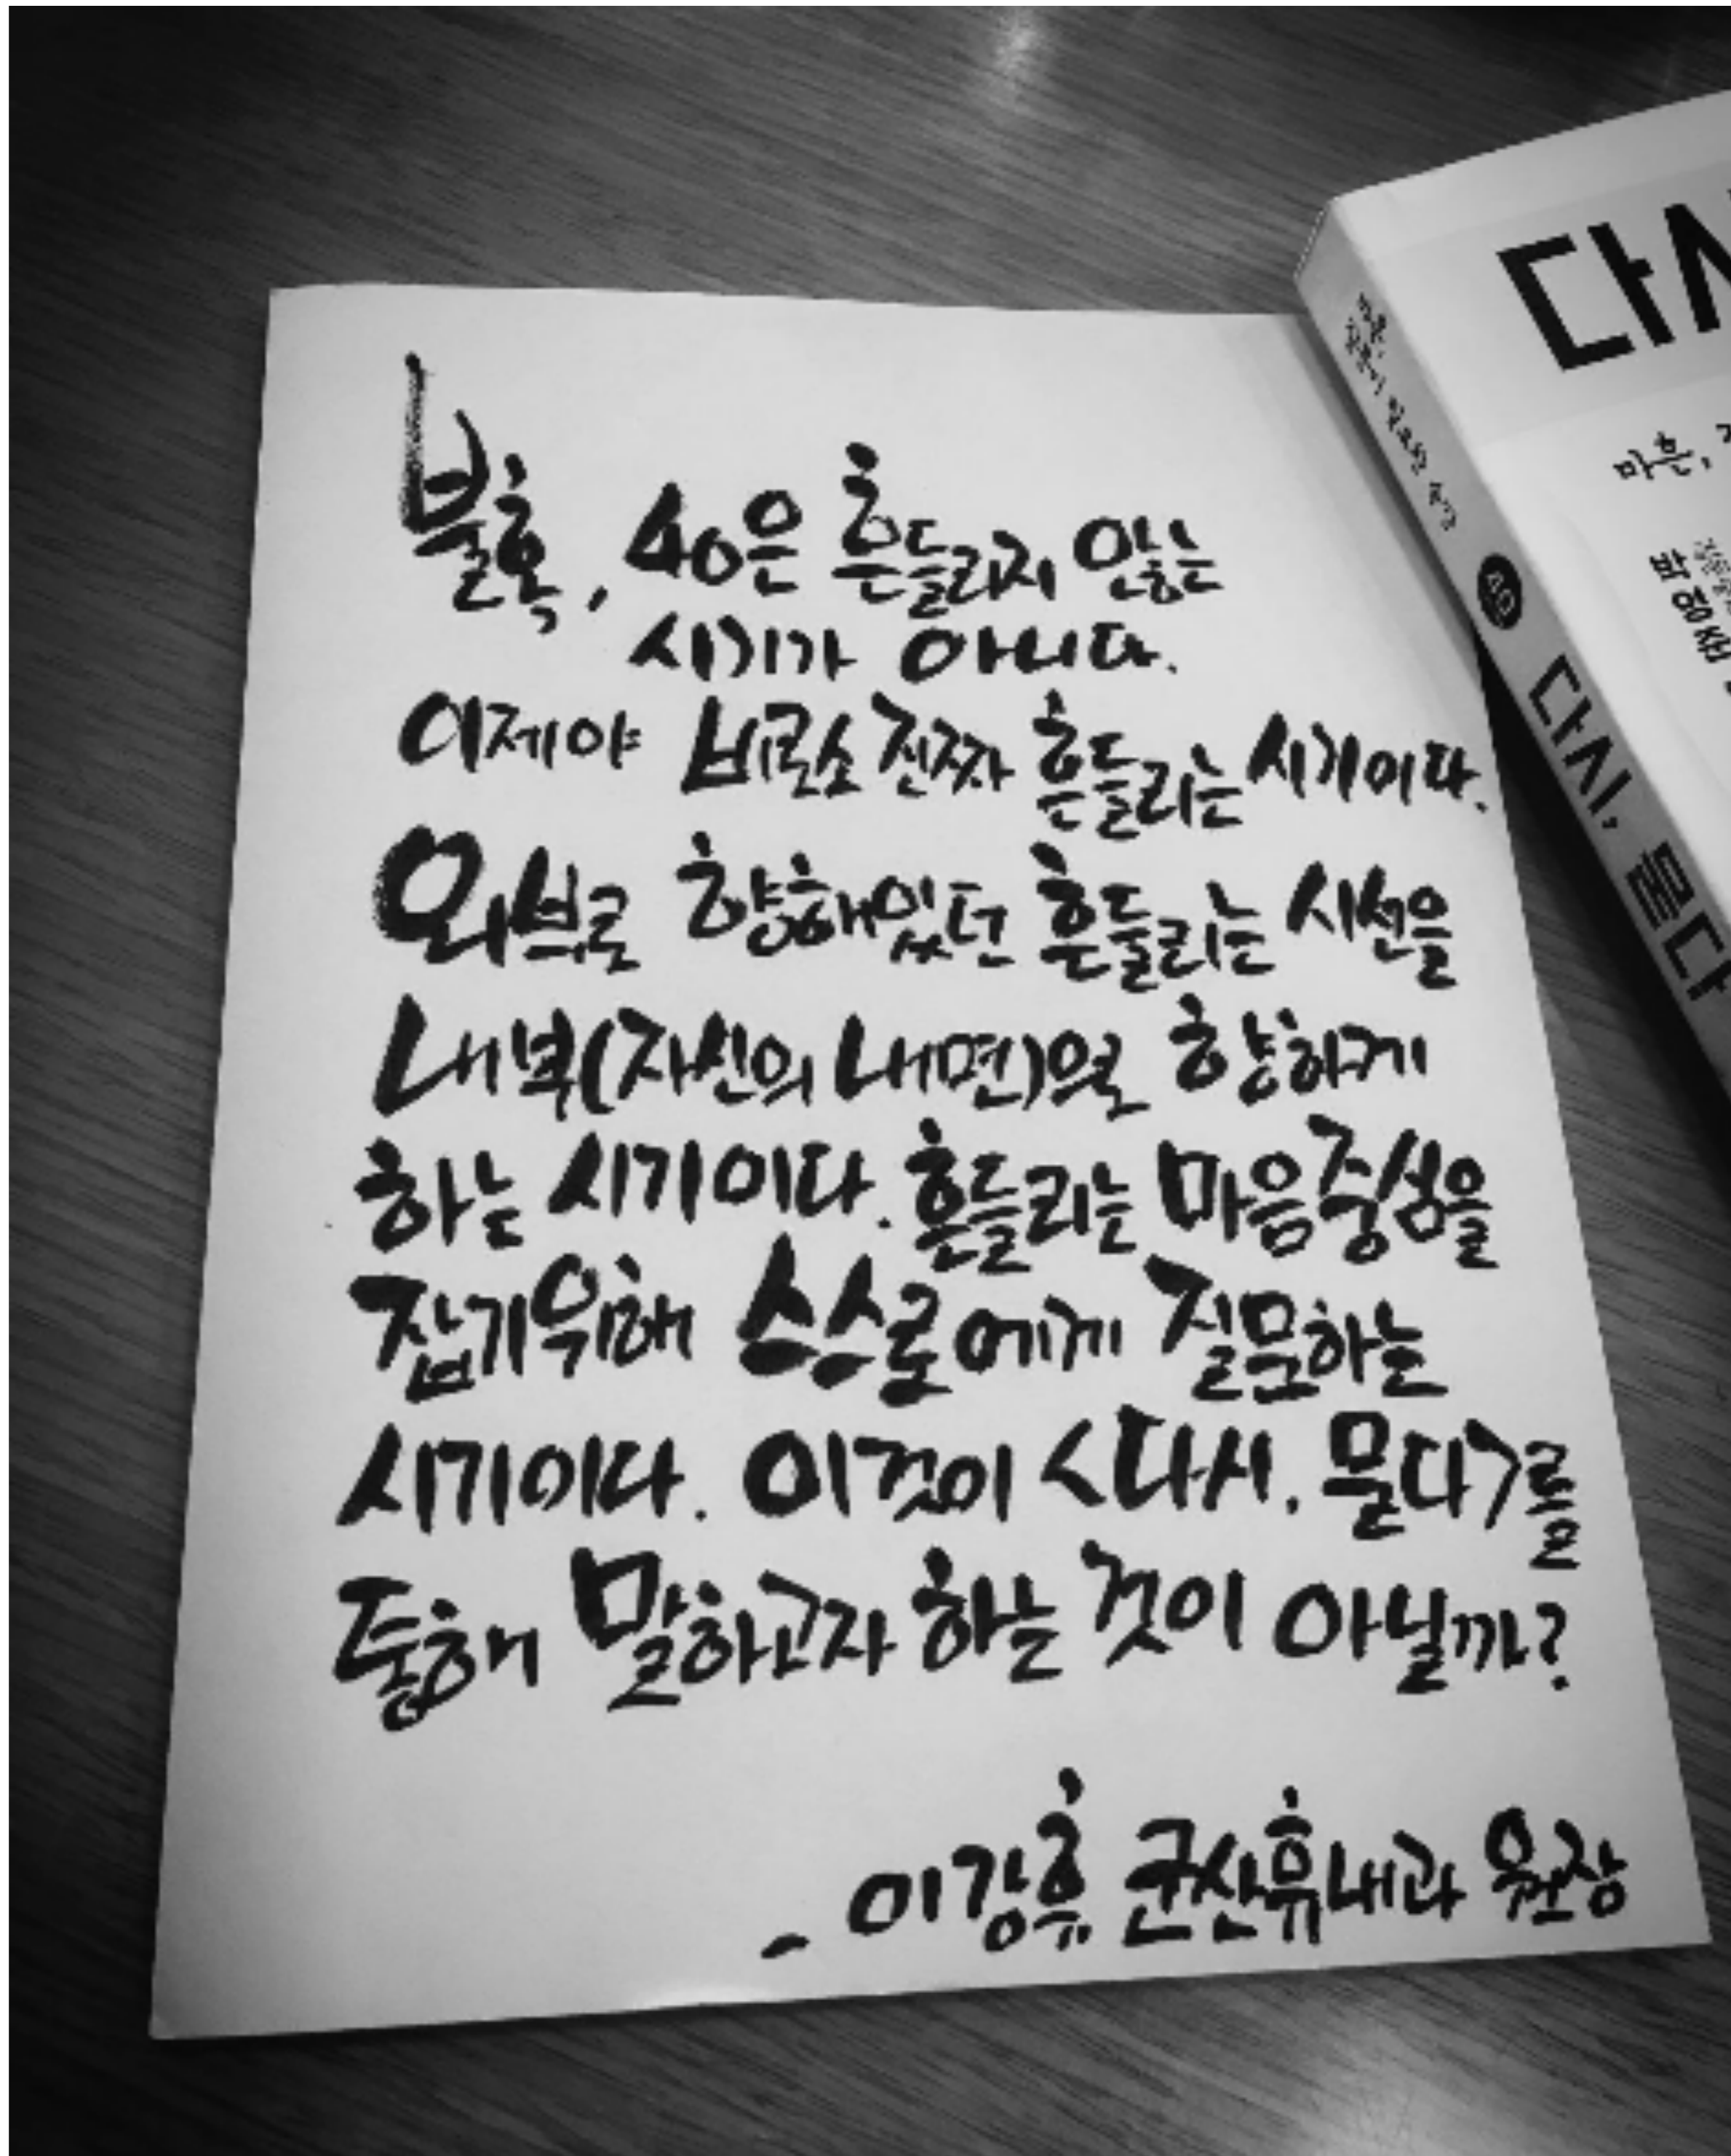 불혹, 40은 흔들리지 않는
시기가 아니다.
이제야 비로소 진짜 흔들리는 시기이다.
외부로 향해있던 흔들리는 시선을
내부(자신의 내면)으로 향하게
하는 시기이다. 흔들리는 마음중심을
잡기위해 스스로에게 질문하는
시기이다. 이것이 <다시. 묻다>를
통해 말하고자 하는 것이 아닐까?
- 이강휴 군산휴내과 원장
다시
마흔,
박영준
40
다시, 묻다